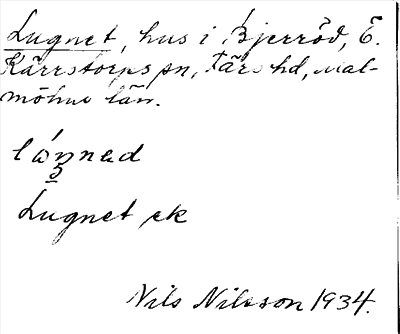 Lugnet, hus i Bjerröd, Ö.
Kärrstorps sn, Färs hd, Mal-
möhus län.
Lugnet ek
Nils Nilsson 1934.